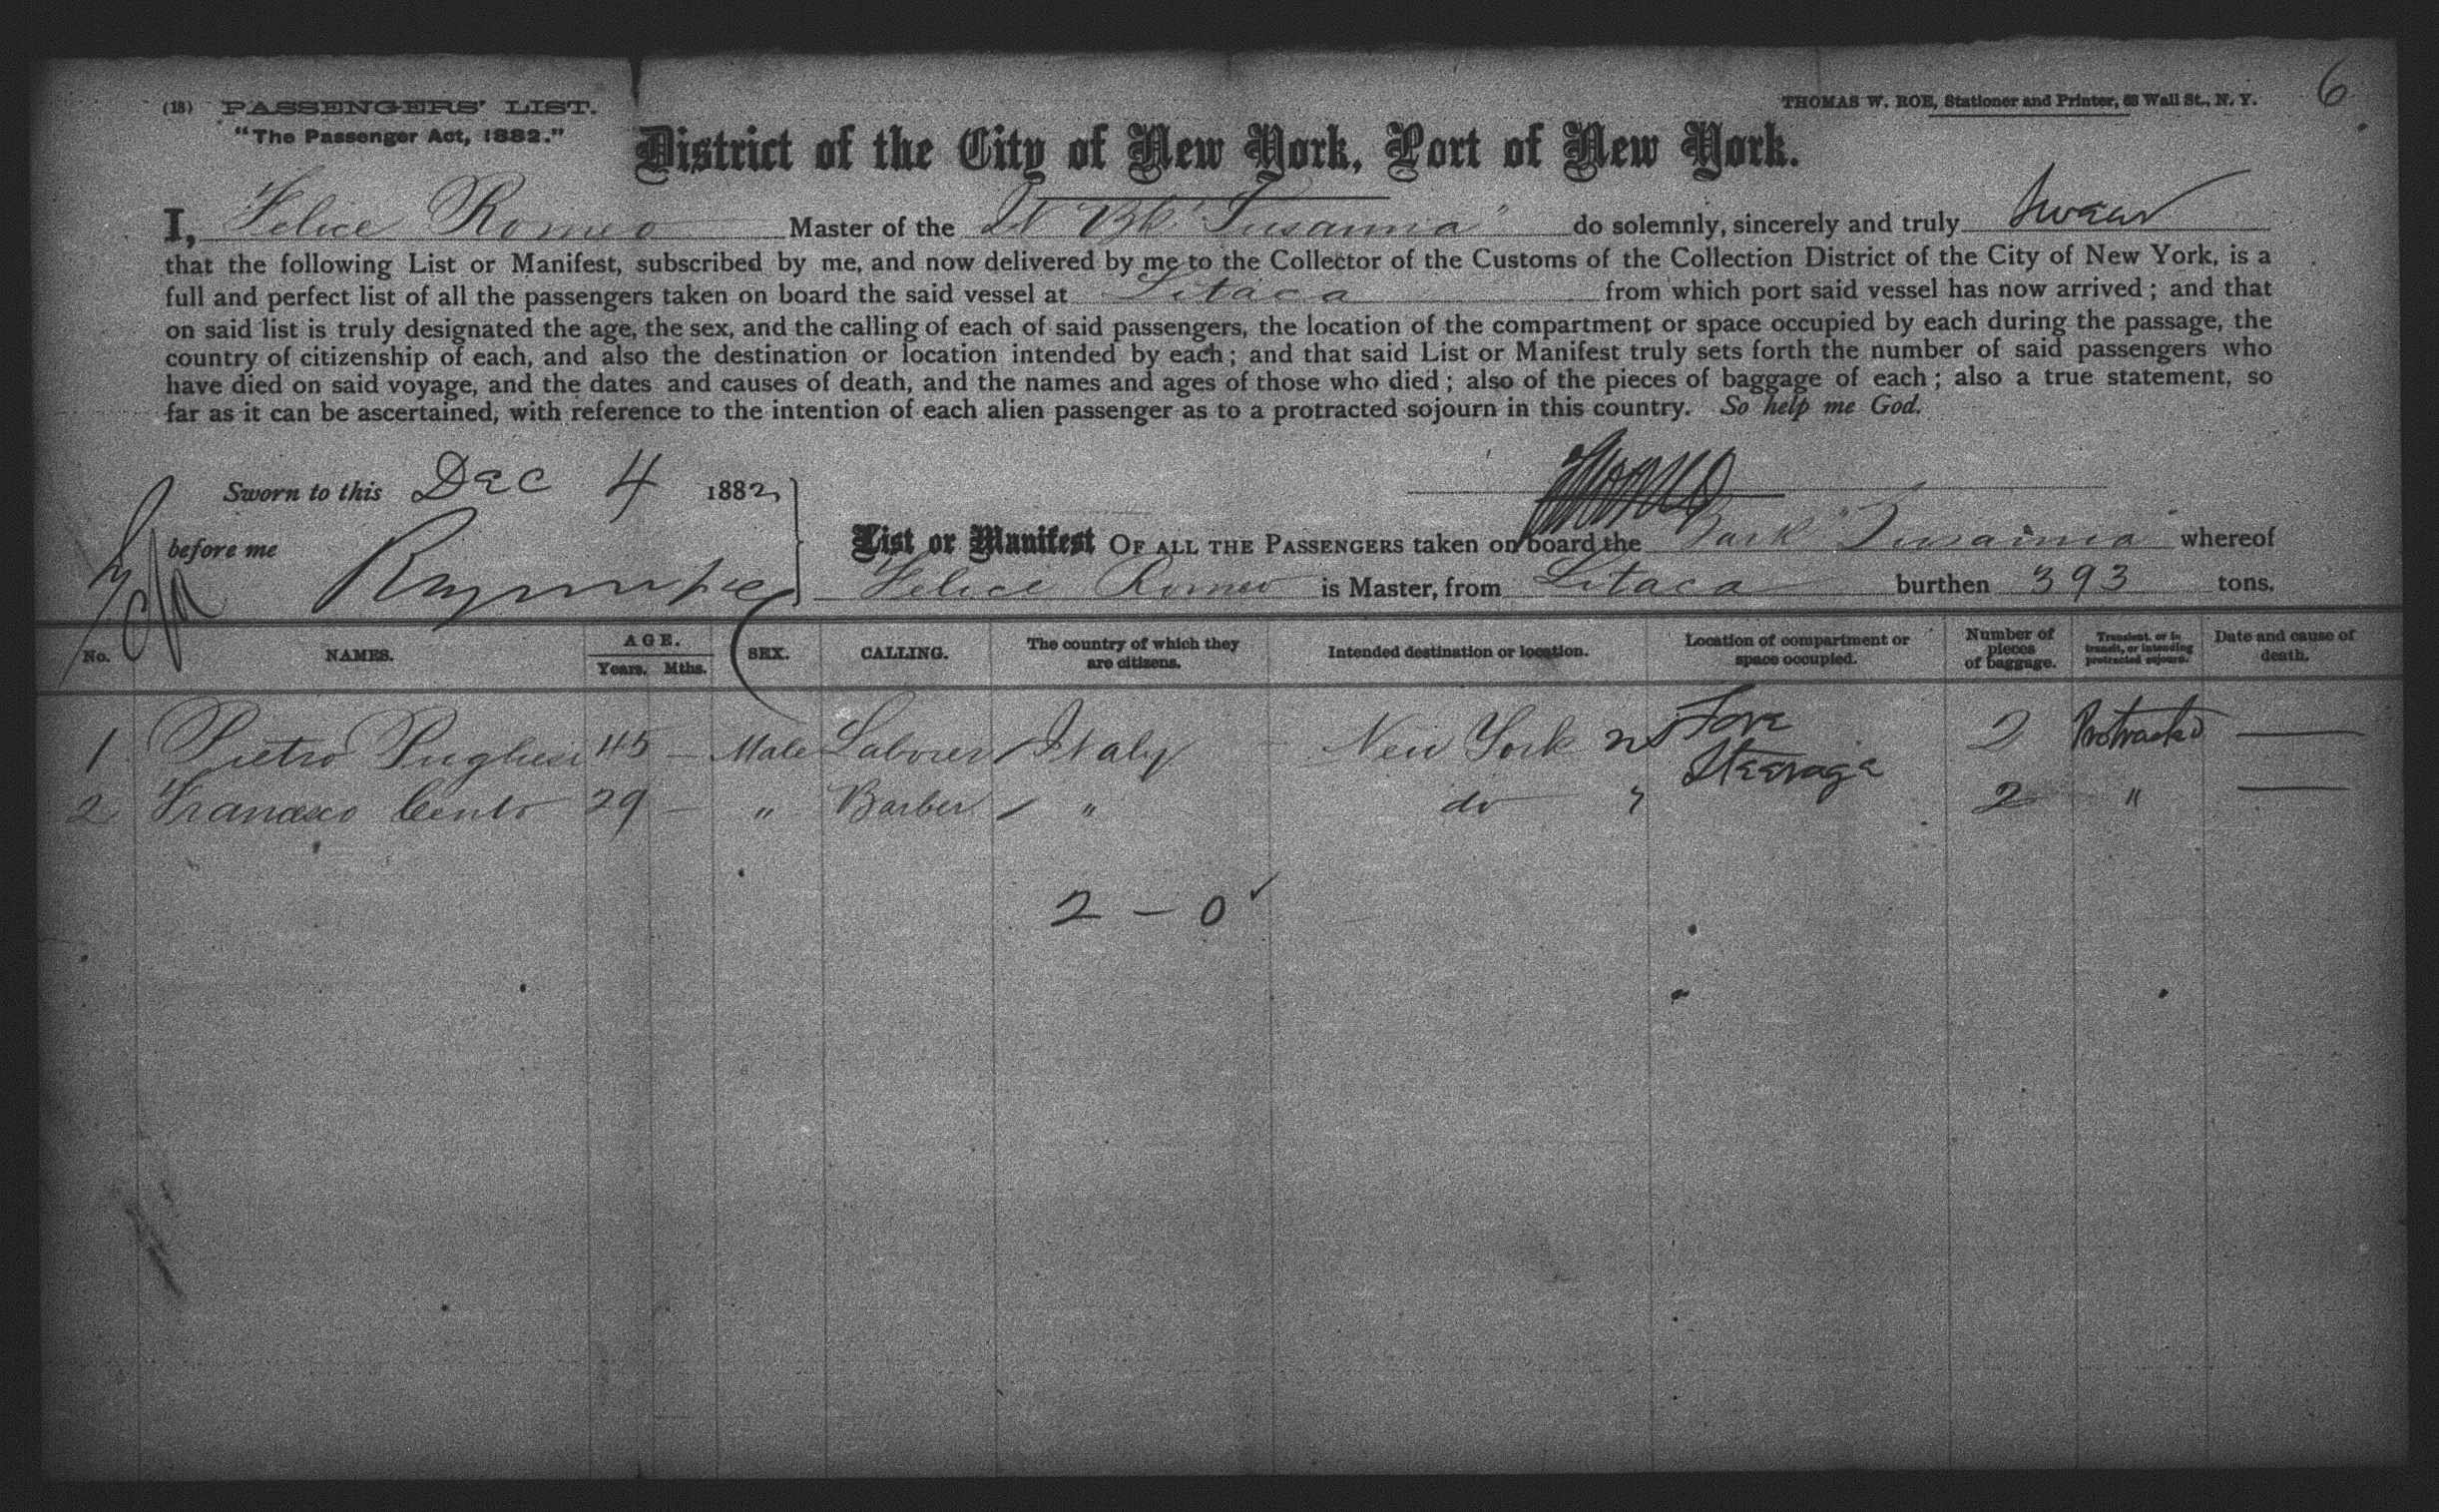 6
(18) PASSENGERS' LIST.
THOMAS W. ROE, Stationer and Printer, 68 Wall St., N. Y.
"The Passenger Act, 1882."
District of the City of New York, Port of New York.
I, Felice Romeo Master of the It Bk "Susanna" do solemnly, sincerely and truly swear
that the following List or Manifest, subscribed by me, and now delivered by me to the Collector of the Customs of the Collection District of the City of New York, is a
full and perfect list of all the passengers taken on board the said vessel at Litaca from which port said vessel has now arrived; and that
on said list is truly designated the age, the sex, and the calling of each of said passengers, the location of the compartment or space occupied by each during the passage, the
country of citizenship of each, and also the destination or location intended by each; and that said List or Manifest truly sets forth the number of said passengers who
have died on said voyage, and the dates and causes of death, and the names and ages of those who died; also of the pieces of baggage of each; also a true statement, so
far as it can be ascertained, with reference to the intention of each alien passenger as to a protracted sojourn in this country. So help me God.
Sworn to this Dec 4 1882,
before me
List or Manifest OF ALL THE PASSENGERS taken on board the Bark "Susanna" whereof
Felice Romeo is Master, from Litaca burthen 393 tons.
No. NAMES. AGE. Years. Mths. SEX. CALLING. The country of which they are citizens. Intended destination or location. Location of compartment or space occupied. Number of pieces of baggage. Transient, or in transit, or intending protracted sojourn. Date and cause of death.
1 Pietro Pugliesi 45 — Male Laborer / Italy New York Fore Steerage 2 Protracted —
2 Francesco Cento 29 — " Barber / " do " 2 " —
2 — 0 ✓